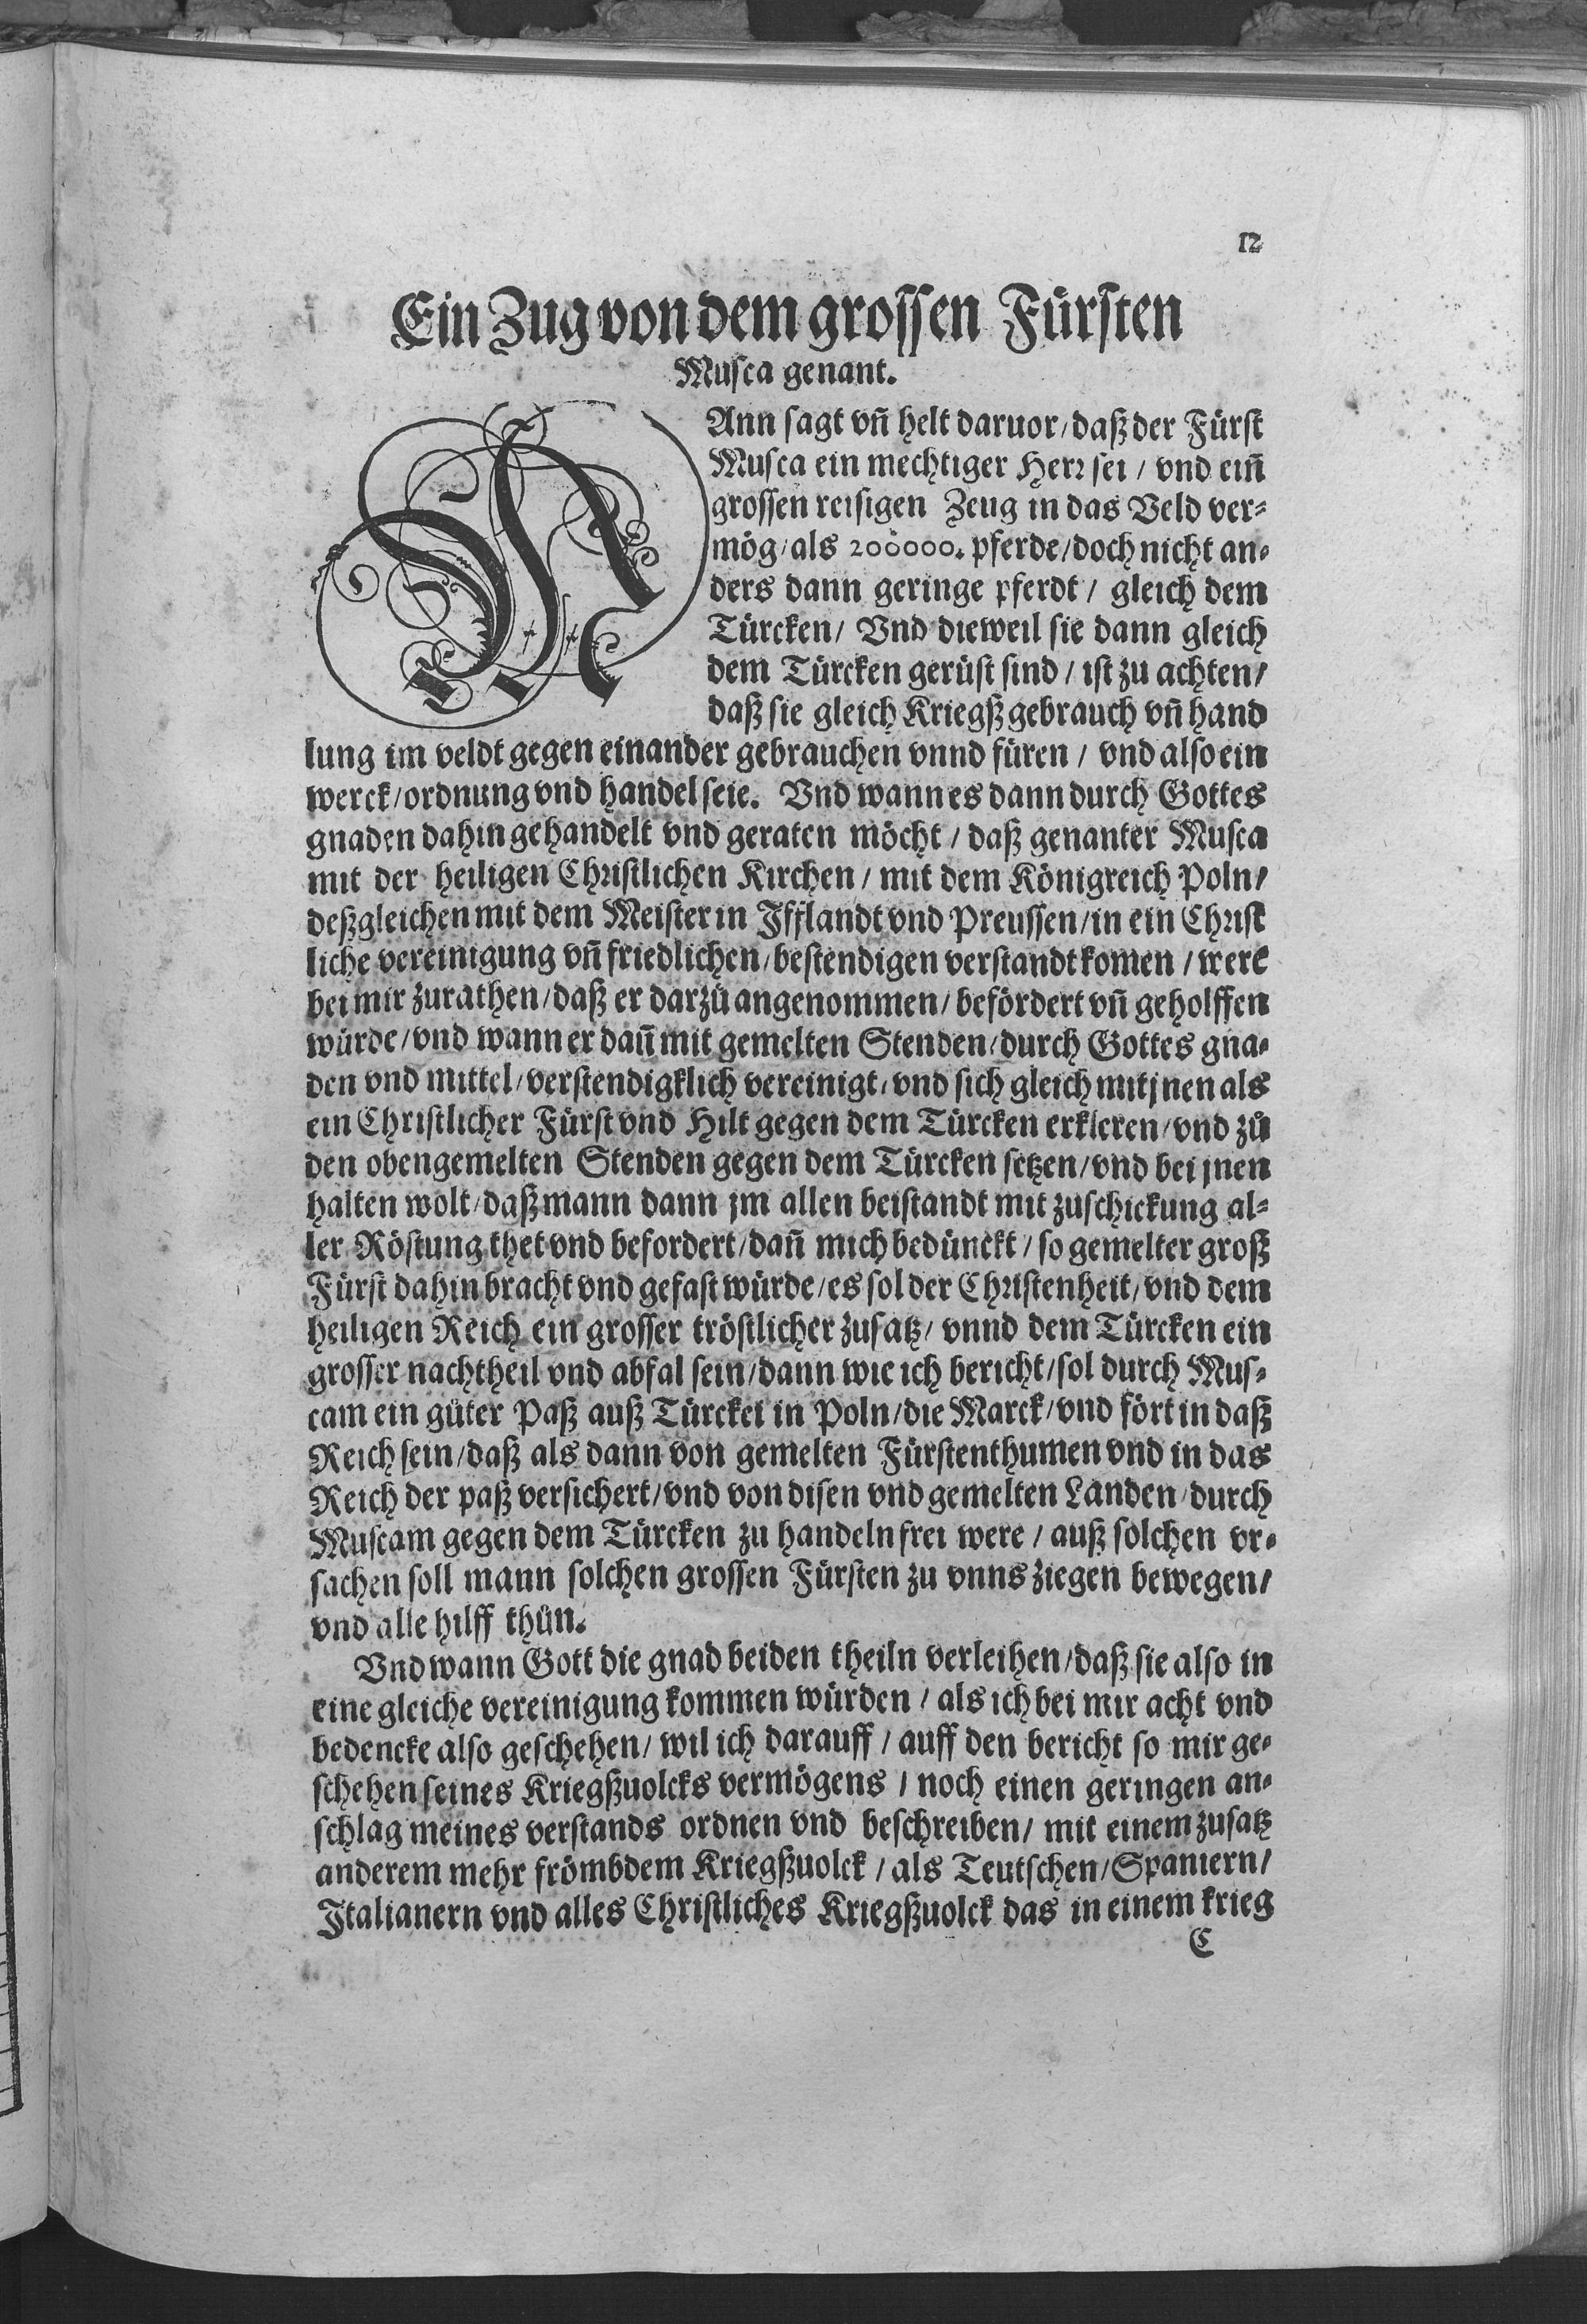 12
Ein Zug von dem grossen Fürsten
Musca genant.
MAnn sagt vñ helt daruor/daß der Fürst
Musca ein mechtiger Herr sei / vnd eiñ
grossen reisigen Zeug in das Veld ver-
mög/als 200000. pferde/doch nicht an-
ders dann geringe pferdt / gleich dem
Türcken/ Vnd dieweil sie dann gleich
dem Türcken gerüst sind / ist zu achten/
daß sie gleich Kriegßgebrauch vñ hand
lung im veldt gegen einander gebrauchen vnnd füren / vnd also ein
werck/ordnung vnd handel seie. Vnd wann es dann durch Gottes
gnaden dahin gehandelt vnd geraten möcht / daß genanter Musca
mit der heiligen Christlichen Kirchen / mit dem Königreich Poln/
deßgleichen mit dem Meister in Jfflandt vnd Preussen/in ein Christ
liche vereinigung vñ friedlichen/bestendigen verstandt komen / were
bei mir zurathen/daß er darzů angenommen/befördert vñ geholffen
würde/vnd wann er dañ mit gemelten Stenden/durch Gottes gna-
den vnd mittel/verstendigklich vereinigt/vnd sich gleich mit jnen als
ein Christlicher Fürst vnd Hilt gegen dem Türcken erkleren/vnd zů
den obengemelten Stenden gegen dem Türcken setzen/vnd bei jnen
halten wolt/daß mann dann jm allen beistandt mit zuschickung al-
ler Röstung thet vnd befordert/dañ mich bedünckt / so gemelter groß
Fürst dahin bracht vnd gefast würde/es sol der Christenheit/vnd dem
heiligen Reich ein grosser tröstlicher zusatz/ vnnd dem Türcken ein
grosser nachtheil vnd abfal sein/dann wie ich bericht/sol durch Mus-
cam ein gůter Paß auß Türckei in Poln/die Marck/vnd fört in daß
Reich sein/daß als dann von gemelten Fürstenthumen vnd in das
Reich der paß versichert/vnd von disen vnd gemelten Landen/durch
Muscam gegen dem Türcken zu handeln frei were / auß solchen vr-
sachen soll mann solchen grossen Fürsten zu vnns ziegen bewegen/
vnd alle hilff thůn.
Vnd wann Gott die gnad beiden theiln verleihen/daß sie also in
eine gleiche vereinigung kommen würden / als ich bei mir acht vnd
bedencke also geschehen/ wil ich darauff / auff den bericht so mir ge-
schehen seines Kriegßuolcks vermögens / noch einen geringen an-
schlag meines verstands ordnen vnd beschreiben/ mit einem zusatz
anderem mehr frömbdem Kriegßuolck / als Teutschen/Spaniern/
Jtalianern vnd alles Christliches Kriegßuolck das in einem krieg
C